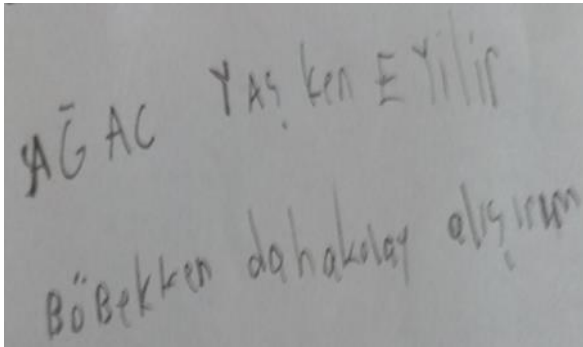 AĞAC YAŞken EYilir
BöBekken dahakolay alışırım